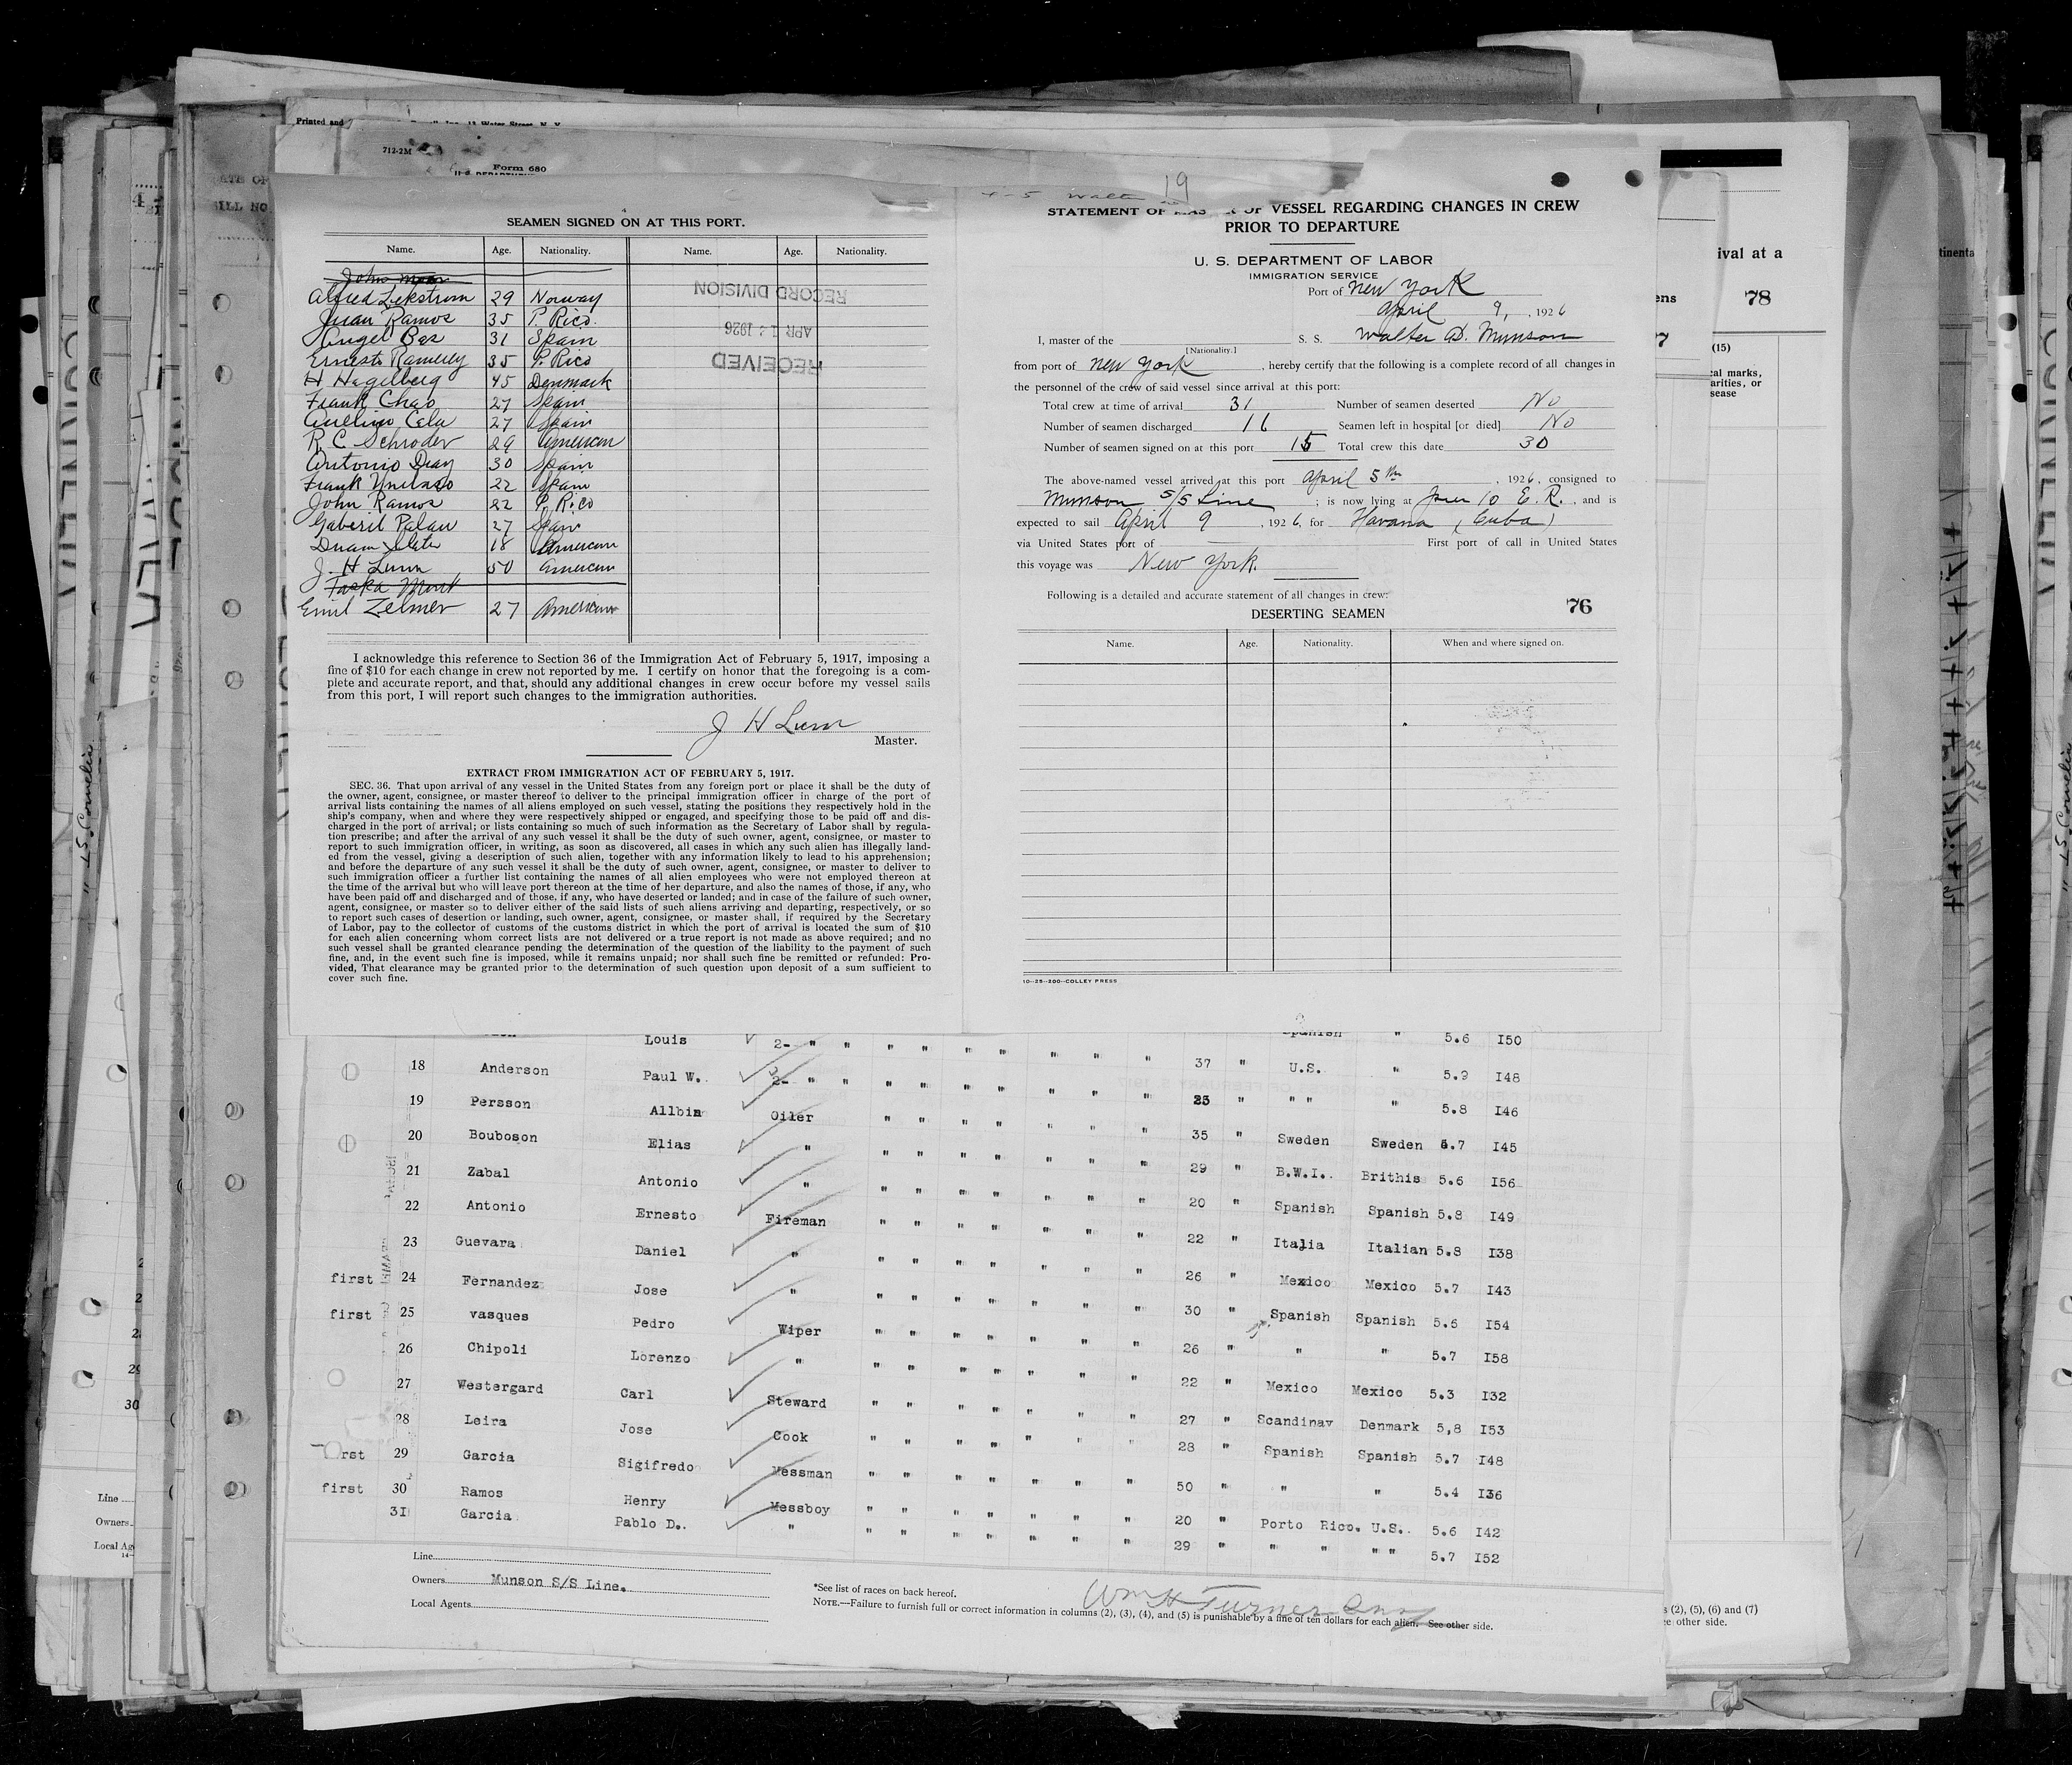 Printed and
712-2M
Form 680
SEAMEN SIGNED ON AT THIS PORT.
Name. Age. Nationality. Name. Age. Nationality.
Alfred 29 Norway
Juan Ramos 35 P. Rico.
Angel 31 Spain
Ernesto 35 P. Rico
H Hagelberg 45 Denmark
Frank Chao 27 Spain
27 Spain
R. C. Schroder 29 American
Antonio 30 Spain
Frank 22 Spain
John Ramos 22 P. Rico
Gaberil Palau 27 Spain
18 American
J. H Lunn 50 American
Emil Zelmer 27 American
RECORD DIVISION
APR 12 1926
RECEIVED
I acknowledge this reference to Section 36 of the Immigration Act of February 5, 1917, imposing a
fine of $10 for each change in crew not reported by me. I certify on honor that the foregoing is a com-
plete and accurate report, and that, should any additional changes in crew occur before my vessel sails
from this port, I will report such changes to the immigration authorities.
J H Lunn
Master.
EXTRACT FROM IMMIGRATION ACT OF FEBRUARY 5, 1917.
SEC. 36. That upon arrival of any vessel in the United States from any foreign port or place it shall be the duty of
the owner, agent, consignee, or master thereof to deliver to the principal immigration officer in charge of the port of
arrival lists containing the names of all aliens employed on such vessel, stating the positions they respectively hold in the
ship's company, when and where they were respectively shipped or engaged, and specifying those to be paid off and dis-
charged in the port of arrival; or lists containing so much of such information as the Secretary of Labor shall by regula-
tion prescribe; and after the arrival of any such vessel it shall be the duty of such owner, agent, consignee, or master to
report to such immigration officer, in writing, as soon as discovered, all cases in which any such alien has illegally land-
ed from the vessel, giving a description of such alien, together with any information likely to lead to his apprehension;
and before the departure of any such vessel it shall be the duty of such owner, agent, consignee, or master to deliver to
such immigration officer a further list containing the names of all alien employees who were not employed thereon at
the time of the arrival but who will leave port thereon at the time of her departure, and also the names of those, if any, who
have been paid off and discharged and of those, if any, who have deserted or landed; and in case of the failure of such owner,
agent, consignee, or master so to deliver either of the said lists of such aliens arriving and departing, respectively, or so
to report such cases of desertion or landing, such owner, agent, consignee, or master shall, if required by the Secretary
of Labor, pay to the collector of customs of the customs district in which the port of arrival is located the sum of $10
for each alien concerning whom correct lists are not delivered or a true report is not made as above required; and no
such vessel shall be granted clearance pending the determination of the question of the liability to the payment of such
fine, and, in the event such fine is imposed, while it remains unpaid; nor shall such fine be remitted or refunded: Pro-
vided, That clearance may be granted prior to the determination of such question upon deposit of a sum sufficient to
cover such fine.
19
STATEMENT OF VESSEL REGARDING CHANGES IN CREW
PRIOR TO DEPARTURE
U. S. DEPARTMENT OF LABOR
IMMIGRATION SERVICE
Port of New York
April 9, , 1926
I, master of the S. S. Walter D. Munson
[Nationality.]
from port of New York , hereby certify that the following is a complete record of all changes in
the personnel of the crew of said vessel since arrival at this port:
Total crew at time of arrival 31 Number of seamen deserted No
Number of seamen discharged 16 Seamen left in hospital [or died] No
Number of seamen signed on at this port 15 Total crew this date 30
The above-named vessel arrived at this port April 5th , 1926, consigned to
Munson S/S Line ; is now lying at Pier 10 E. R. , and is
expected to sail April 9 , 1926, for Havana (Cuba)
via United States port of First port of call in United States
this voyage was New York.
Following is a detailed and accurate statement of all changes in crew:
76
DESERTING SEAMEN
Name. Age. Nationality. When and where signed on.
10-25-200-COLLEY PRESS
ival at a
78
(15)
Louis 2- " " " " " " " " " Spanish " 5.6 I50
18 Anderson Paul W. 2- " " " " " " " " " 37 " U.S. " 5.9 I48
19 Persson Allbin Oiler " " " " " " " " 25 " " " " 5.8 I46
20 Bouboson Elias " " " " " " " " " 35 " Sweden Sweden 5.7 I45
21 Zabal Antonio " " " " " " " " " 29 " B.W.I. Brithis 5.6 I56
22 Antonio Ernesto Fireman " " " " " " " " 20 " Spanish Spanish 5.8 I49
23 Guevara Daniel " " " " " " " " " 22 " Italia Italian 5.8 I38
first 24 Fernandez Jose " " " " " " " " " 26 " Mexico Mexico 5.7 I43
first 25 vasques Pedro Wiper " " " " " " " " 30 " Spanish Spanish 5.6 I54
26 Chipoli Lorenzo " " " " " " " " " 26 " " " 5.7 I58
27 Westergard Carl Steward " " " " " " " " 22 " Mexico Mexico 5.3 I32
28 Leira Jose Cook " " " " " " " " 27 " Scandinav Denmark 5,8 I53
rst 29 Garcia Sigifredo Messman " " " " " " " " 28 " Spanish Spanish 5.7 I48
first 30 Ramos Henry Messboy " " " " " " " " 50 " " " 5.4 I36
31 Garcia Pablo D. " " " " " " " " " 20 " Porto Rico. U.S. 5.6 I42
29 " " " " " 5.7 I52
Line
Owners Munson S/S Line.
Local Agents
*See list of races on back hereof.
Wm H Turner
NOTE.—Failure to furnish full or correct information in columns (2), (3), (4), and (5) is punishable by a fine of ten dollars for each alien. See other side.
(2), (5), (6) and (7)
other side.
Line
Owners
Local Ag